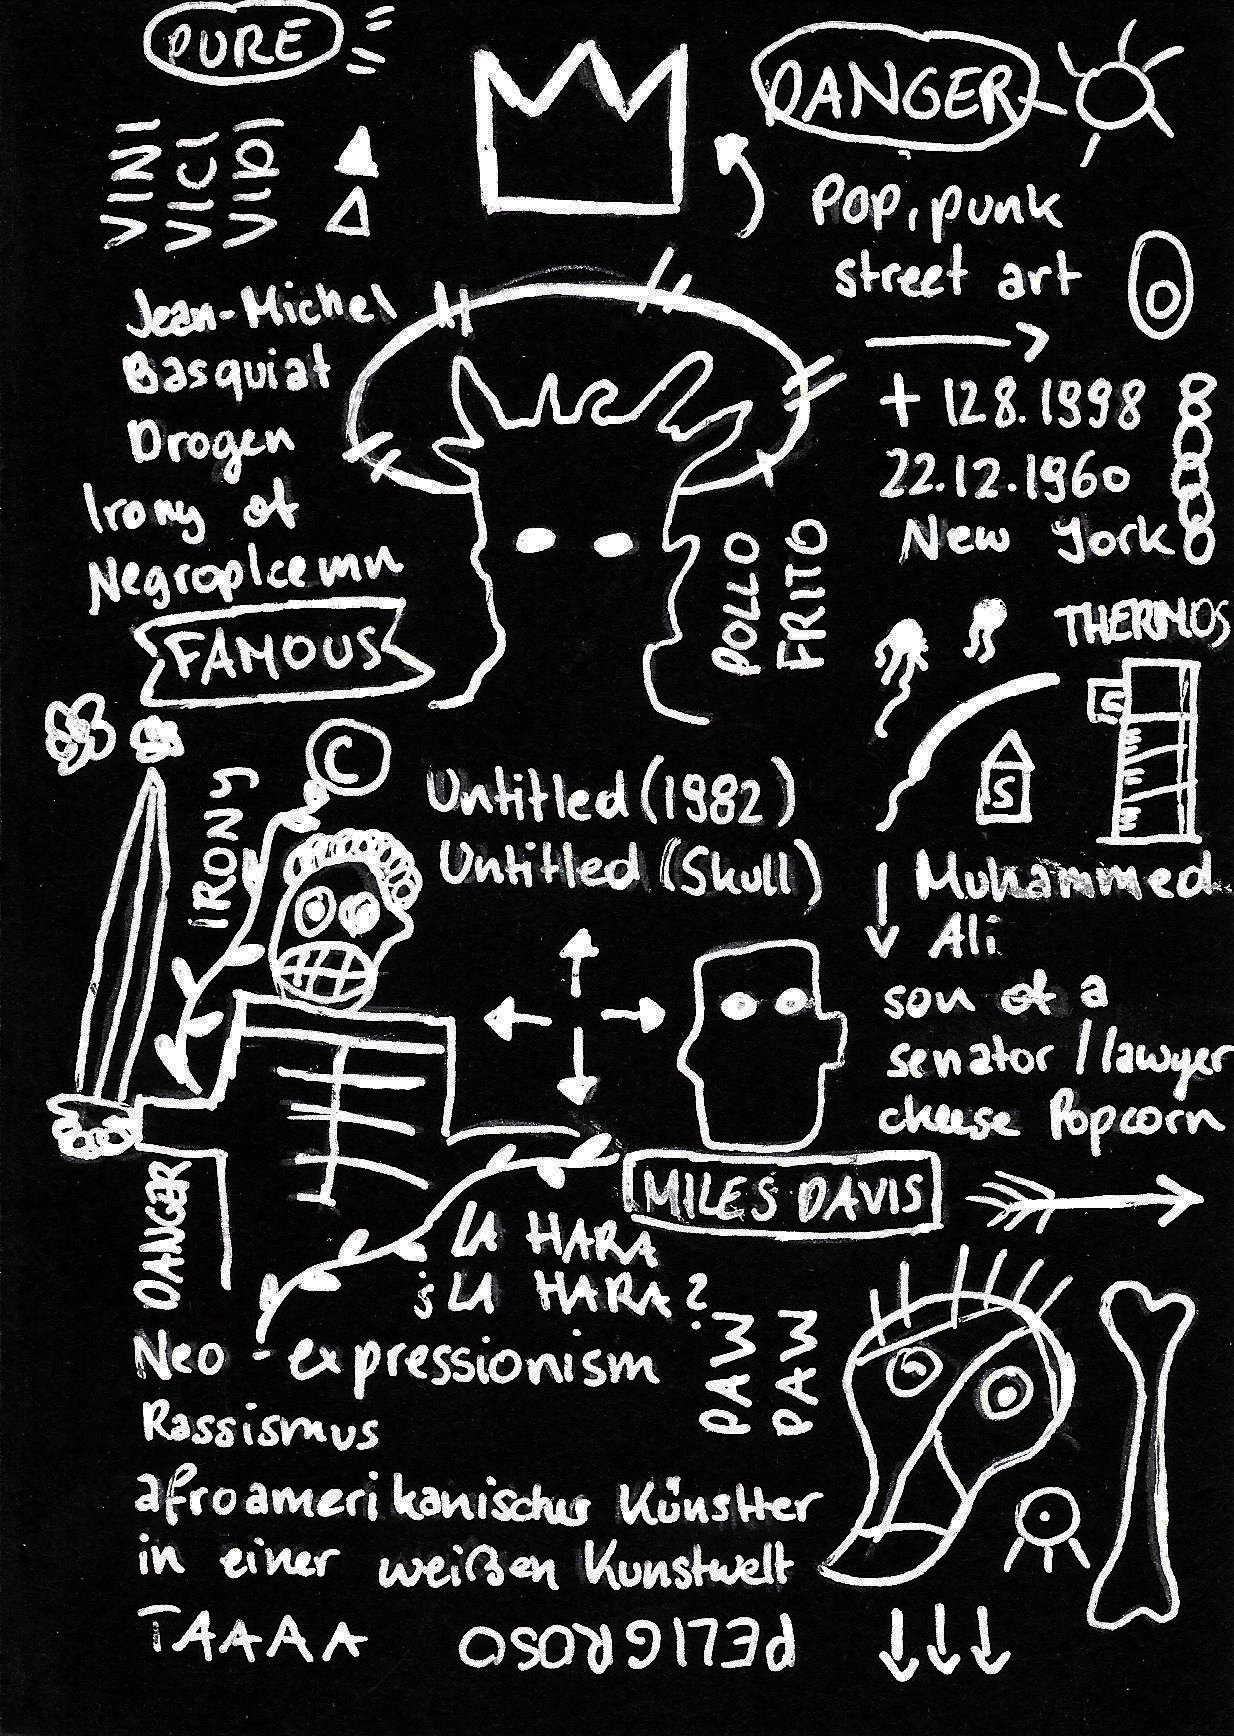 PURE
DANGER
VINI
VICI
VIDI
Pop, punk
street art
Jean-Michel
Basquiat
Drogen
Irony of
Negroplcemn
FAMOUS
+ 12.8.1998
22.12.1960
New York
POLLO
FRITO
THERMOS
S
S
©
IRONY
Untitled (1982)
Untitled (Skull)
Muhammed
Ali
son of a
senator / lawyer
cheese Popcorn
MILES DAVIS
DANGER
LA HARA
¿LA HARA?
PAW
PAW
Neo-expressionism
Rassismus
afroamerikanischer Künstler
in einer weißen Kunstwelt
TAAAA
PELIGROSO